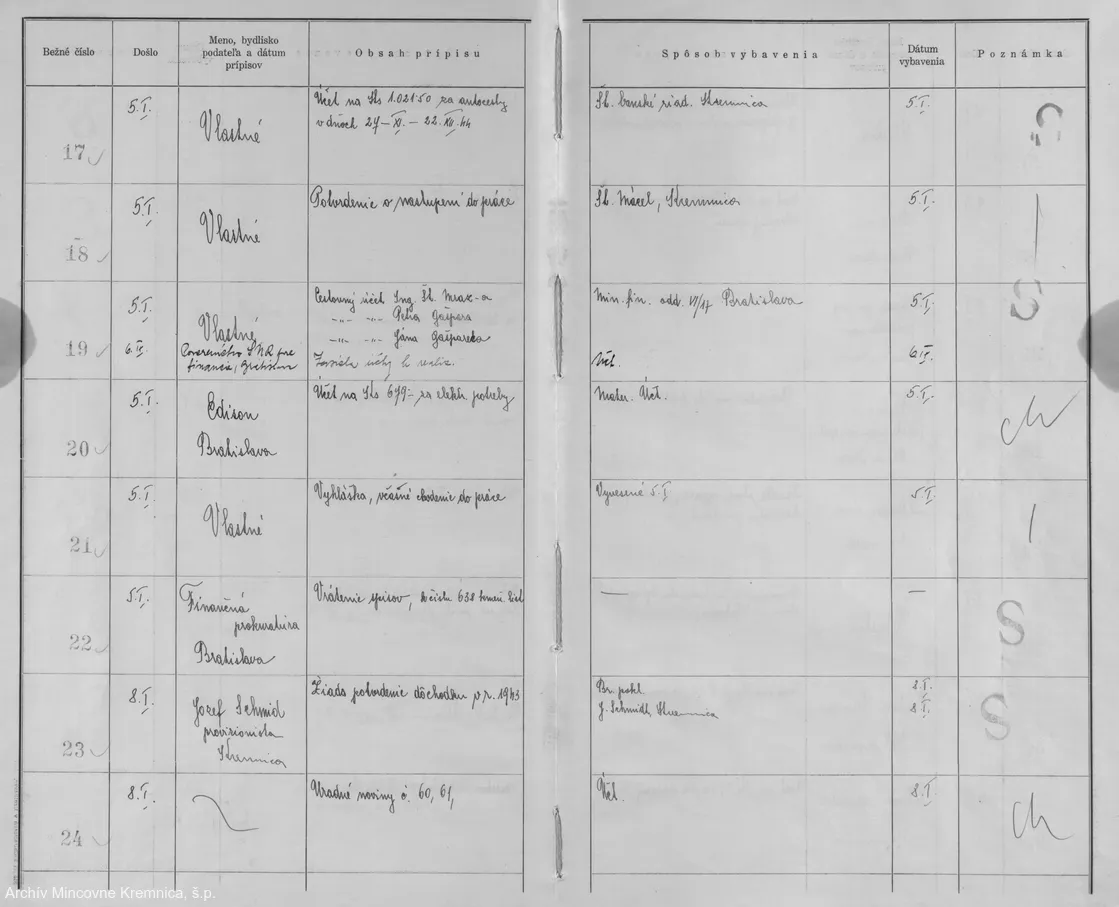 Bežné číslo
Došlo
Meno, bydlisko
podateľa a dátum
prípisov
Obsah prípisu
Spôsob vybavenia
Dátum
vybavenia
Poznámka
17
5.I.
Vlastné
Účet na Ks 1.021·50 za autocesty
v dňoch 27–XI. – 22.XII.44
Št. banské riad. Kremnica
5.I.
S
18
5.I.
Vlastné
Potvrdenie o nastúpení do práce
Št. Mácel, Kremnica
5.I.
19
5.I.
Vlastné
Cestovný účet Ing. Št. Mraz-a
-„- -„- Petra Gašpara
-„- -„- Jána Gašpareka
Min. fin. odd. VI/17 Bratislava
5.I.
S
6.IX.
Povereníctvo SNR pre
financie, Bratislava
Zasiela účty k realiz.
Účt.
6.IX.
20
5.I.
Edison
Bratislava
Účet na Ks 679·– za elektr. potreby
Mater. Účt.
5.I.
ch
21
5.I.
Vlastné
Vyhláška, včasné chodenie do práce
Vyvesené 5.I.
5.I.
22
5.I.
Finančná
prokuratúra
Bratislava
Vrátenie spisov, k číslu 638
—
—
S
23
8.I.
Jozef Schmid
provizionista
Kremnica
Žiada potvrdenie dôchodku v r. 1943
Br. pokl.
8.I.
J. Schmidt, Kremnica
8.I.
S
24
8.I.
Úradné noviny č. 60, 61,
Účt.
8.I.
ch
Archív Mincovne Kremnica, š.p.